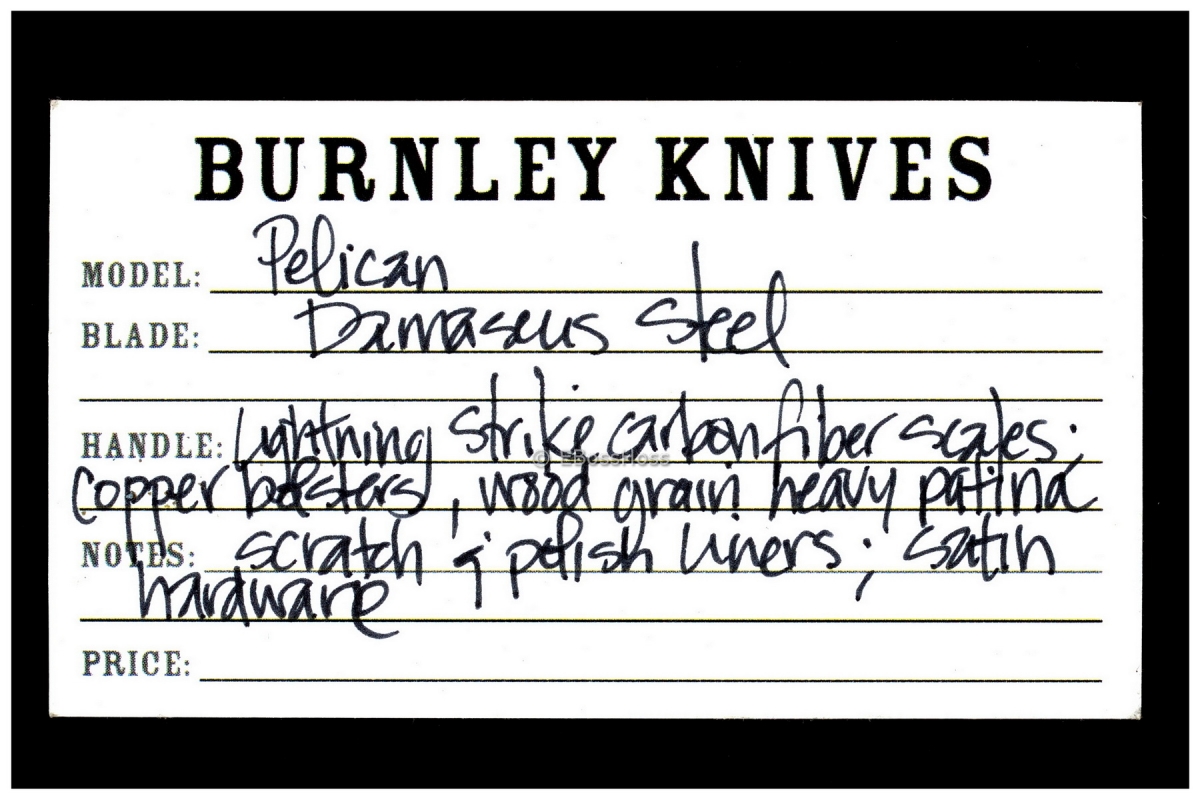 BURNLEY KNIVES
MODEL: Pelican
BLADE: Damascus Steel
HANDLE: Lightning Strike carbon fiber scales;
© EBossHoss
copper bolsters, wood grain heavy patina
NOTES: scratch & polish liners; satin
hardware
PRICE: